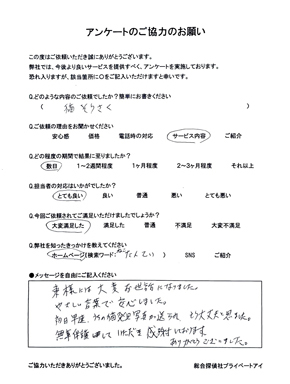 アンケートのご協力のお願い
この度はご依頼いただき誠にありがとうございます。
弊社では、今後より良いサービスを提供すべく、アンケートを実施しております。
恐れ入りますが、該当箇所に○をご記入いただけますと幸いです。
Q.どのような内容のご依頼でしたか?簡単にお書きください
( 猫 そうさく )
Q.ご依頼の理由をお聞かせください
安心感 価格 電話時の対応 サービス内容 ご紹介
Q.どの程度の期間で結果に至りましたか?
数日 1~2週間程度 1ヶ月程度 2~3ヶ月程度 それ以上
Q.担当者の対応はいかがでしたか?
とても良い 良い 普通 悪い とても悪い
Q.今回ご依頼されてご満足いただけましたでしょうか?
大変満足した 満足した 普通 不満足 大変不満足
Q.弊社を知ったきっかけを教えてください
ホームページ(検索ワード: たんてい ) SNS ご紹介
●メッセージを自由にご記入ください
様には大変お世話になりました。
やさしい言葉で安心しました。
初日早速、うちの猫発見写真が送られ もう大丈夫と思いました。
無事保護 していただき感謝しております。
ありがとうございました。
ご協力いただきありがとうございました。
総合探偵社プライベートアイ